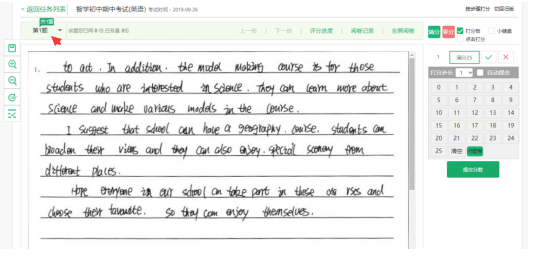 返回任务列表 智学初中期中考试(英语) 考试时间：2019-08-26 按步骤打分 切回旧版
共1题
第1题 上一份 下一份 评分进度 阅卷记录 全屏阅卷
满分 零分 打分板 小键盘
点击打分
1 满分25
打分步长 1 自动提交
0 1 2 3 4
5 6 7 8 9
10 11 12 13 14
15 16 17 18 19
20 21 22 23 24
25 清空
提交分数
1. to act. In addition. the model making course is for those
students who are interested in science. They can learn more about
science and make various models in the course.
I suggest that school can have a geography course. students can
broaden their views and they can also enjoy special scenery from
different places.
Hope everyone in our school can take part in these courses and
choose their favourite. so they can enjoy themselves.